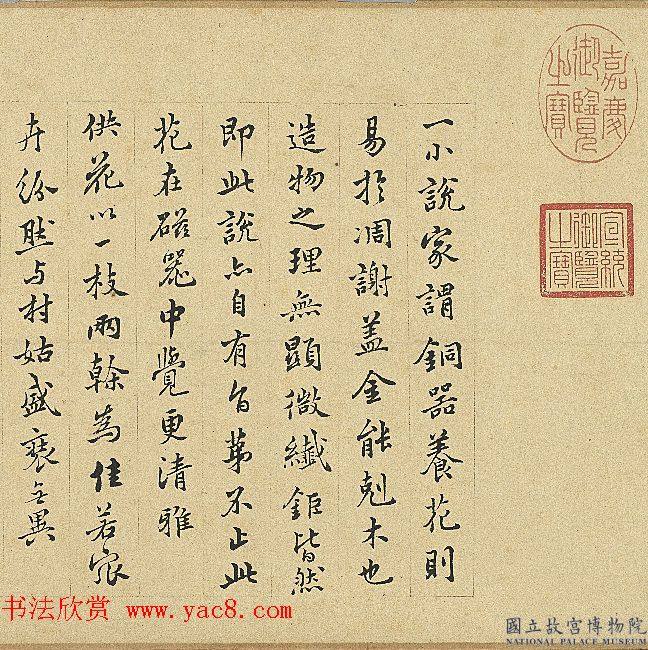 嘉慶御覽之寶
宣統御覽之寶
一小說家謂銅器養花則
易於凋謝盖金能剋木也
造物之理無顯微纖鉅皆然
即此說亦自有旨第不止此
花在磁器中覺更清雅
供花以一枝兩榦為佳若眾
卉紛然与村姑盛裹無異
书法欣赏 www.yac8.com
國立故宮博物院
NATIONAL PALACE MUSEUM